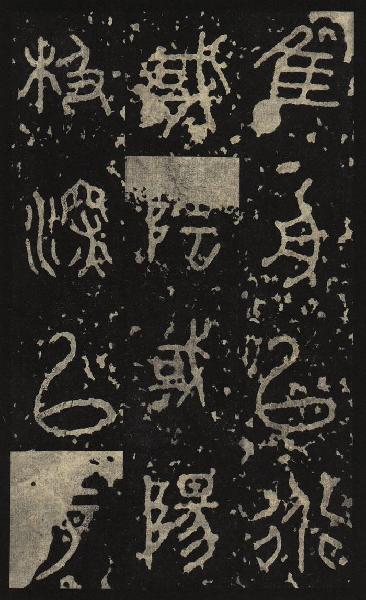 隹舟以衍
或陰或陽
极深以户